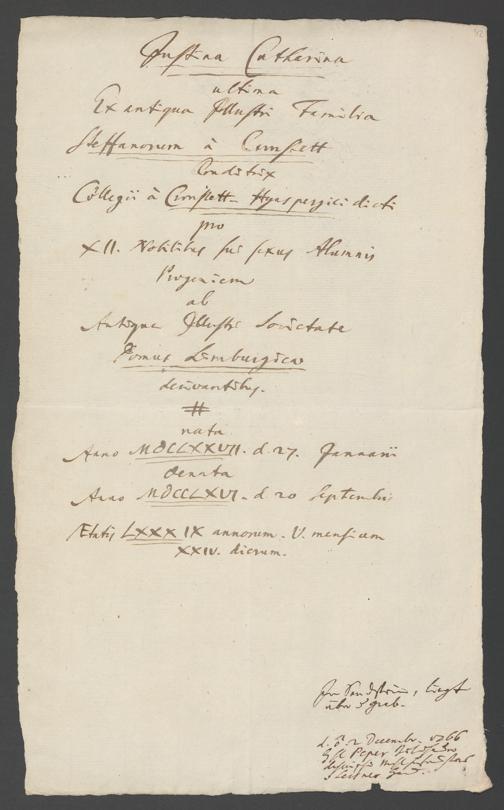 Justina Catharina
ultima
Ex antiqua Illustri Familia
Steffanorum à Cronstett
Conditrix
Collegii à Cronstett-Hynspergici dicti
pro
XII. Nobilibus sui sexus Alumnis
Progeniem
ab
Antiqua Illustri Societate
Domus Limburgica
derivantibus.
#
nata
Anno MDCLXXVII. d. 27. Januarii
denata
Anno MDCCLXVI. d. 20 Septembris
Ætatis LXXXIX annorum. V. mensium
XXIV. dierum.
Im Sandstein, liegt
über d. grab.
d. 2 Decembr. 1766